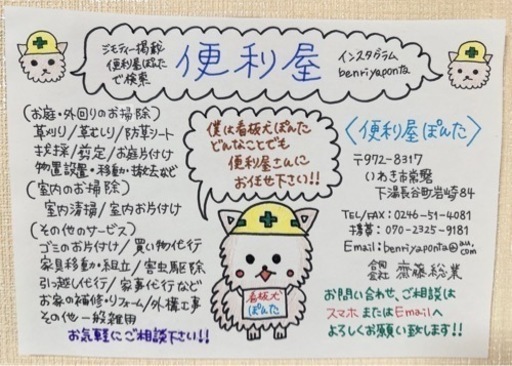 ジモティー掲載
便利屋ぽんた
で検索
便利屋
インスタグラム
benriyaponta
(お庭・外回りのお掃除)
草刈り/草むしり/防草シート
伐採/剪定/お庭片付け
物置設置・移動・撤去など
(室内のお掃除)
室内清掃/室内お片付け
(その他のサービス)
ゴミのお片付け/買い物代行
家具移動・組立/害虫駆除
引っ越し代行/家事代行など
お家の補修・リフォーム/外構工事
その他一般雑用
お気軽にご相談下さい!!
僕は看板犬ぽんた
どんなことでも
便利屋さんに
お任せ下さい!!
看板犬
ぽんた
〈便利屋ぽんた〉
〒972-8317
いわき市常磐
下湯長谷町岩崎84
TEL/FAX:0246-51-4081
携帯:070-2325-9181
Email:benriyaponta@au.com
合同会社 齋藤総業
お問い合わせ、ご相談は
スマホまたはEmailへ
よろしくお願い致します!!